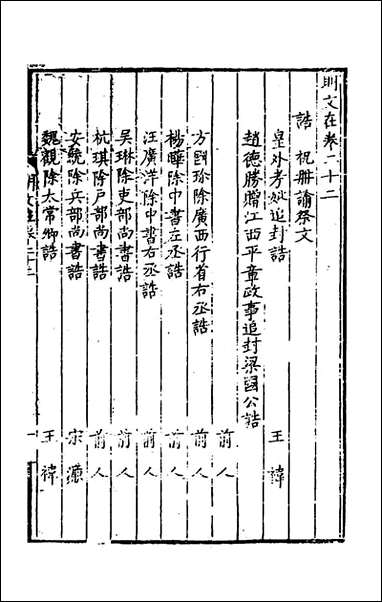 明文在卷二十二
誥 祝册諭祭文
皇外考妣追封誥 王禕
趙德勝贈江西平章政事追封梁國公誥
前人
方國珍除廣西行省右丞誥 前人
楊瓛除中書左丞誥 前人
汪廣洋除中書右丞誥 前人
吴琳除吏部尚書誥 前人
杭琪除戶部尚書誥 前人
安統除兵部尚書誥 宋濂
魏觀除太常卿誥 王禕
明文在卷二十二 一